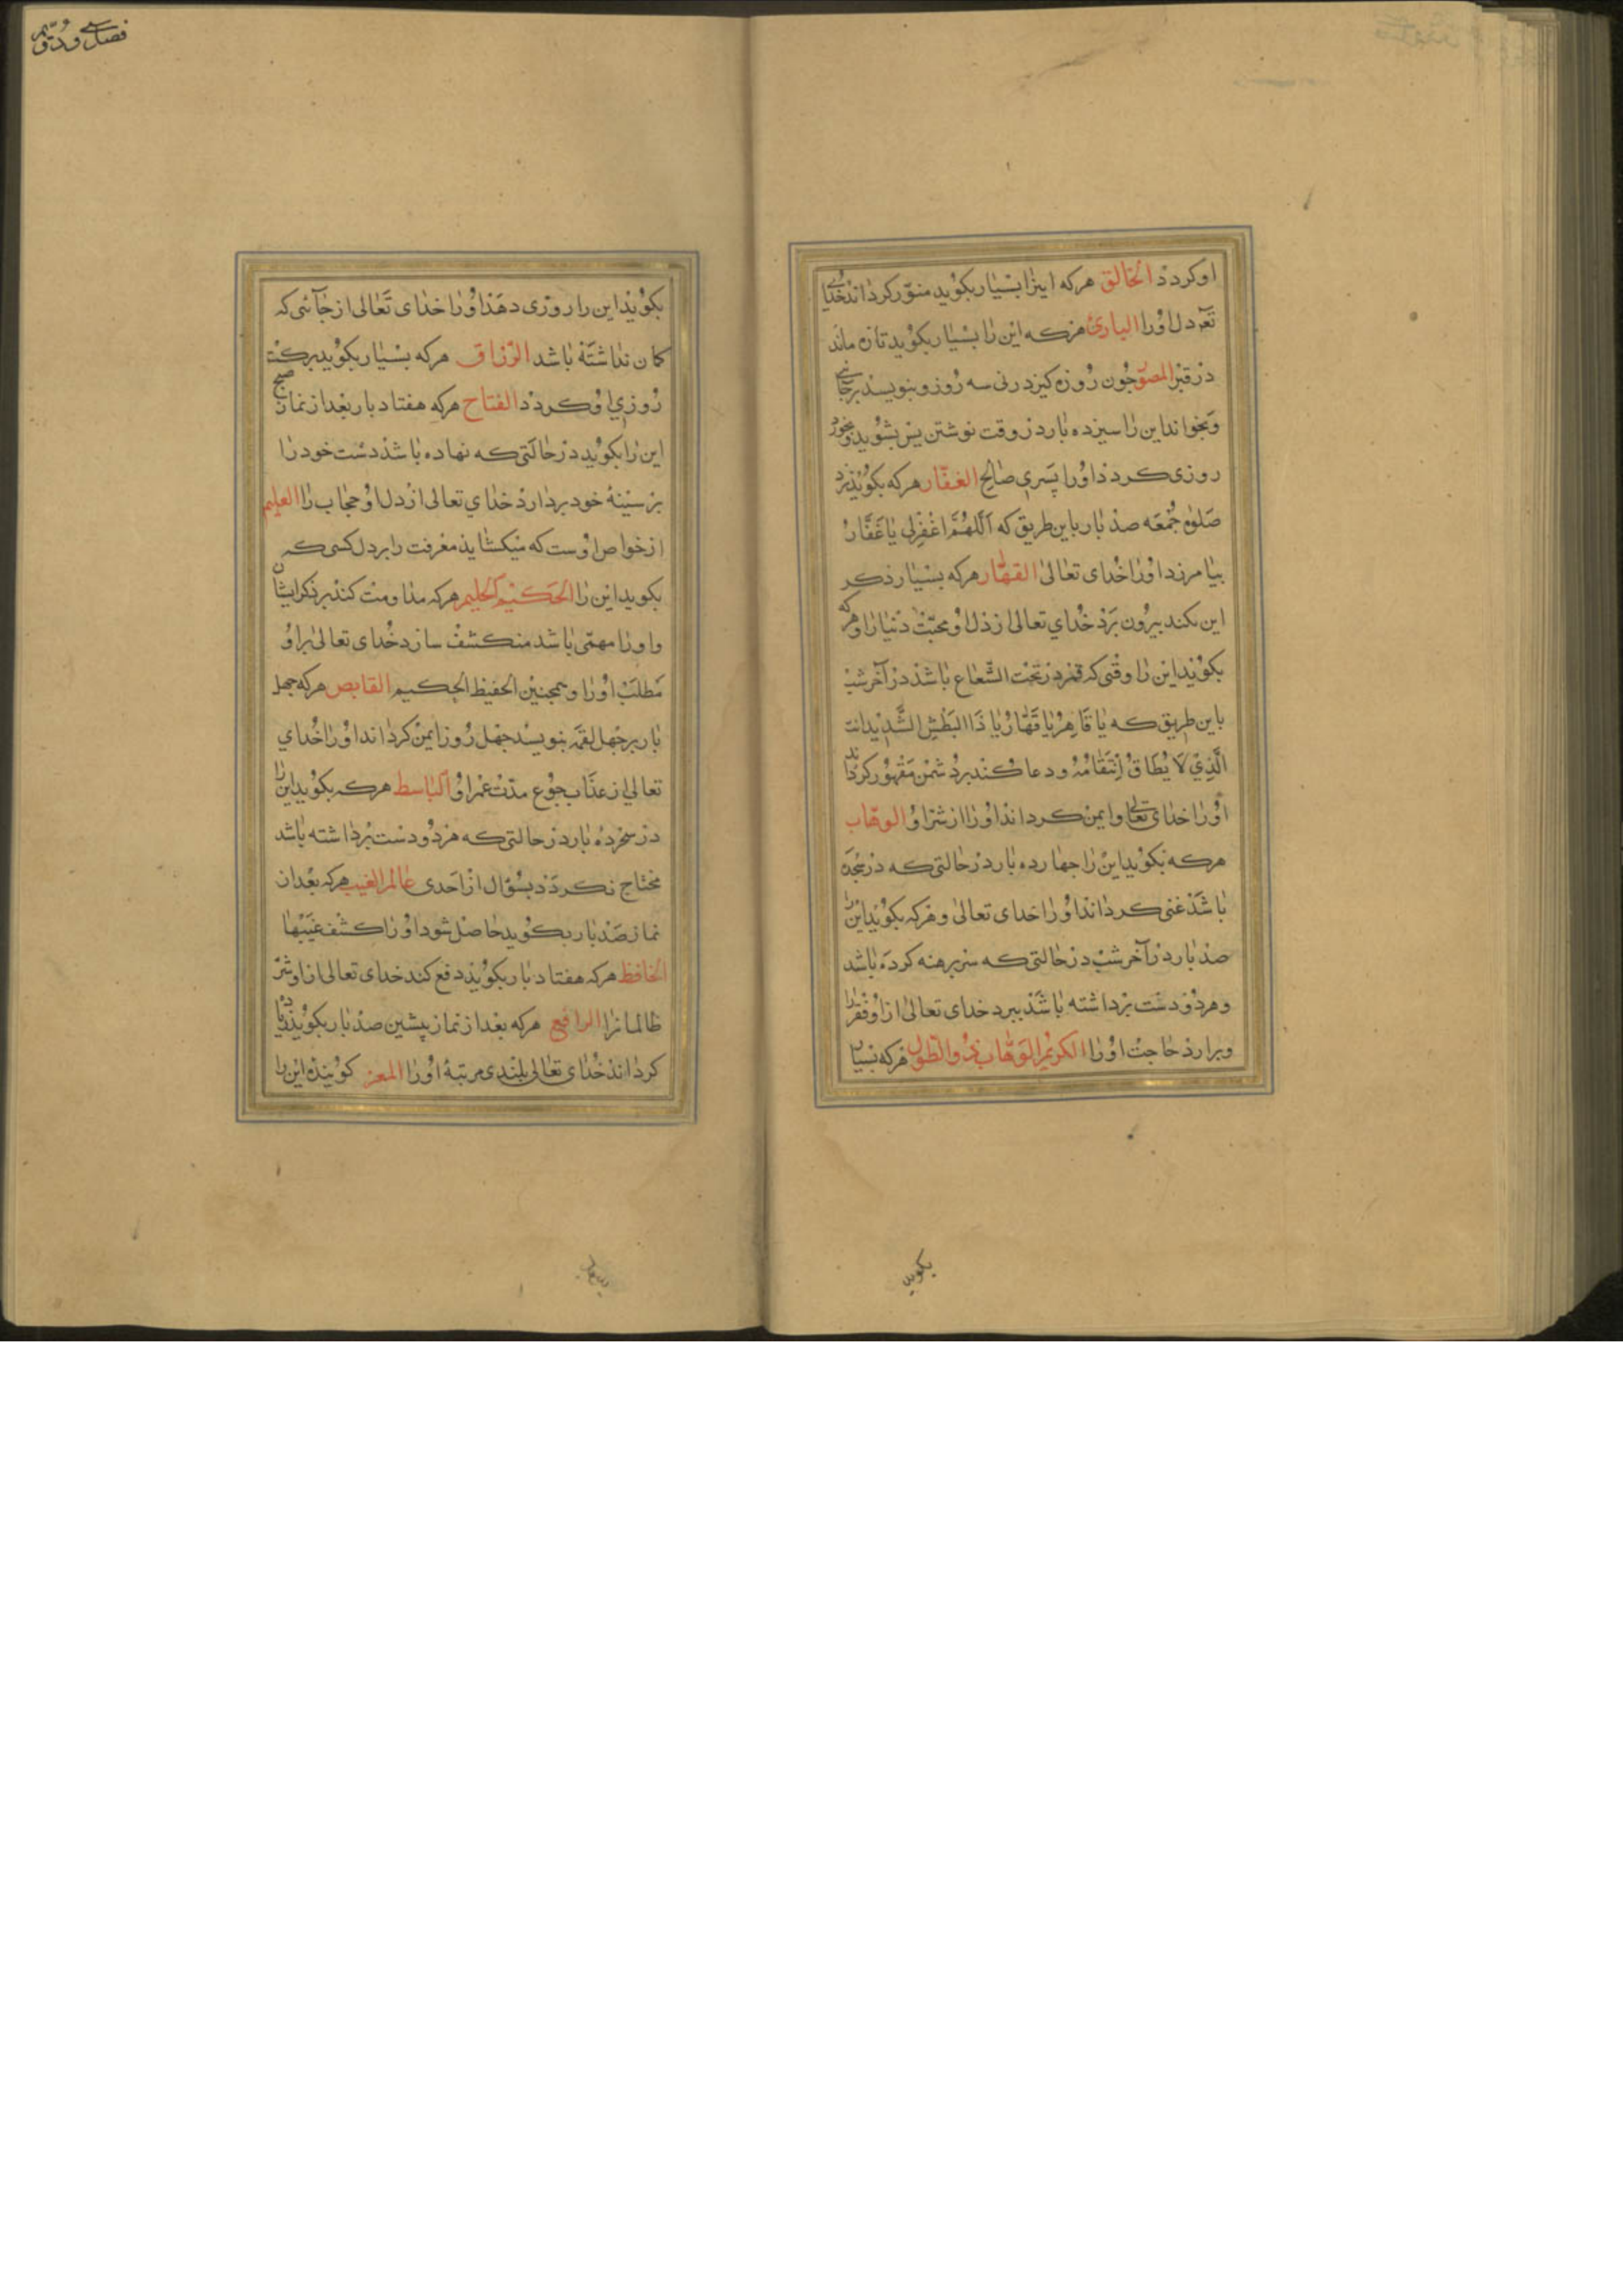 او کردد الخالق هرکه اینرا بسیار بکوید منوّر کرداند خدای
تعه دل اورا البارئ هرکه این را بسیار بکوید تازه ماند
در قبر المصوّر چون روزه کیرد زنی سه روز و بنویسد بر جائی
و بخواند این را سیزده بار در وقت نوشتن پس بشوید و بخورد
روزی کردد اورا پسری صالح الغفّار هرکه بکوید نزد
صلوة جمعه صد بار باین طریق که اَللّهُمَّ اغْفِرْلی یا غَفَّارُ
بیامرزد اورا خدای تعالی القهّار هرکه بسیار ذکر
این نکند بیرون برد خدای تعالی از دل او محبّت دنیا را و هرکه
بکوید این را وقتی که قمر در تحت الشّعاع باشد در آخر شب
باین طریق که یا قَاهِرُ یا قَهَّارُ یا ذَا البَطْشِ الشَّدِیدِ انت
الَّذِي لَا يُطَاقُ اِنْتِقَامُهُ و دعا کند بر دشمن مقهور کرداند
اورا خدای تعالی و ایمن کرداند اورا از شرّ او الوهّاب
هرکه بکوید این را چهارده بار در حالتی که در سجده
باشد غنی کرداند اورا خدای تعالی و هرکه بکوید این را
صد بار در آخر شب در حالتی که سر برهنه کرده باشد
و هر دو دست برداشته باشد ببرد خدای تعالی ازاو فقر را
و برارد حاجت اورا الکریم الوهّاب ذو الطّول هرکه بسیار
بکوید
فصل سی و دوّیم
بکوید این را روزی دهد اورا خدای تعالی از جائی که
کمان نداشته باشد الرّزاق هرکه بسیار بکوید برکت
روزی او کردد الفتاح هرکه هفتاد بار بعد از نماز صبح
این را بکوید در حالتی که نهاده باشد دست خود را
بر سینهٔ خود بردارد خدای تعالی از دل او حجاب را العلیم
از خواص اوست که میکشاید معرفت را بر دل کسی که
بکوید این را الحکیم الحلیم هرکه مداومت کند بر ذکر ایشان
و اورا مهمّی باشد منکشف سازد خدای تعالی بر او
مطلب اورا و همچنین الحفیظ الحکیم القابض هرکه چهل
بار بر چهل لقمه بنویسد چهل روز ایمن کرداند اورا خدای
تعالی از عذاب جوع مدّت عمر او الباسط هرکه بکوید این را
در سحر ده بار در حالتی که هر دو دست برداشته باشد
محتاج نکردد بسؤال از احدی عالم الغیب هرکه بعد از
نماز صد بار بکوید حاصل شود اورا کشف غیبها
الحافظ هرکه هفتاد بار بکوید دفع کند خدای تعالی ازاو شرّ
ظالمانرا الرافع هرکه بعد از نماز پیشین صد بار بکوید زیاد
کرداند خدای تعالی بلندی مرتبهٔ اورا المعز کوینده این را